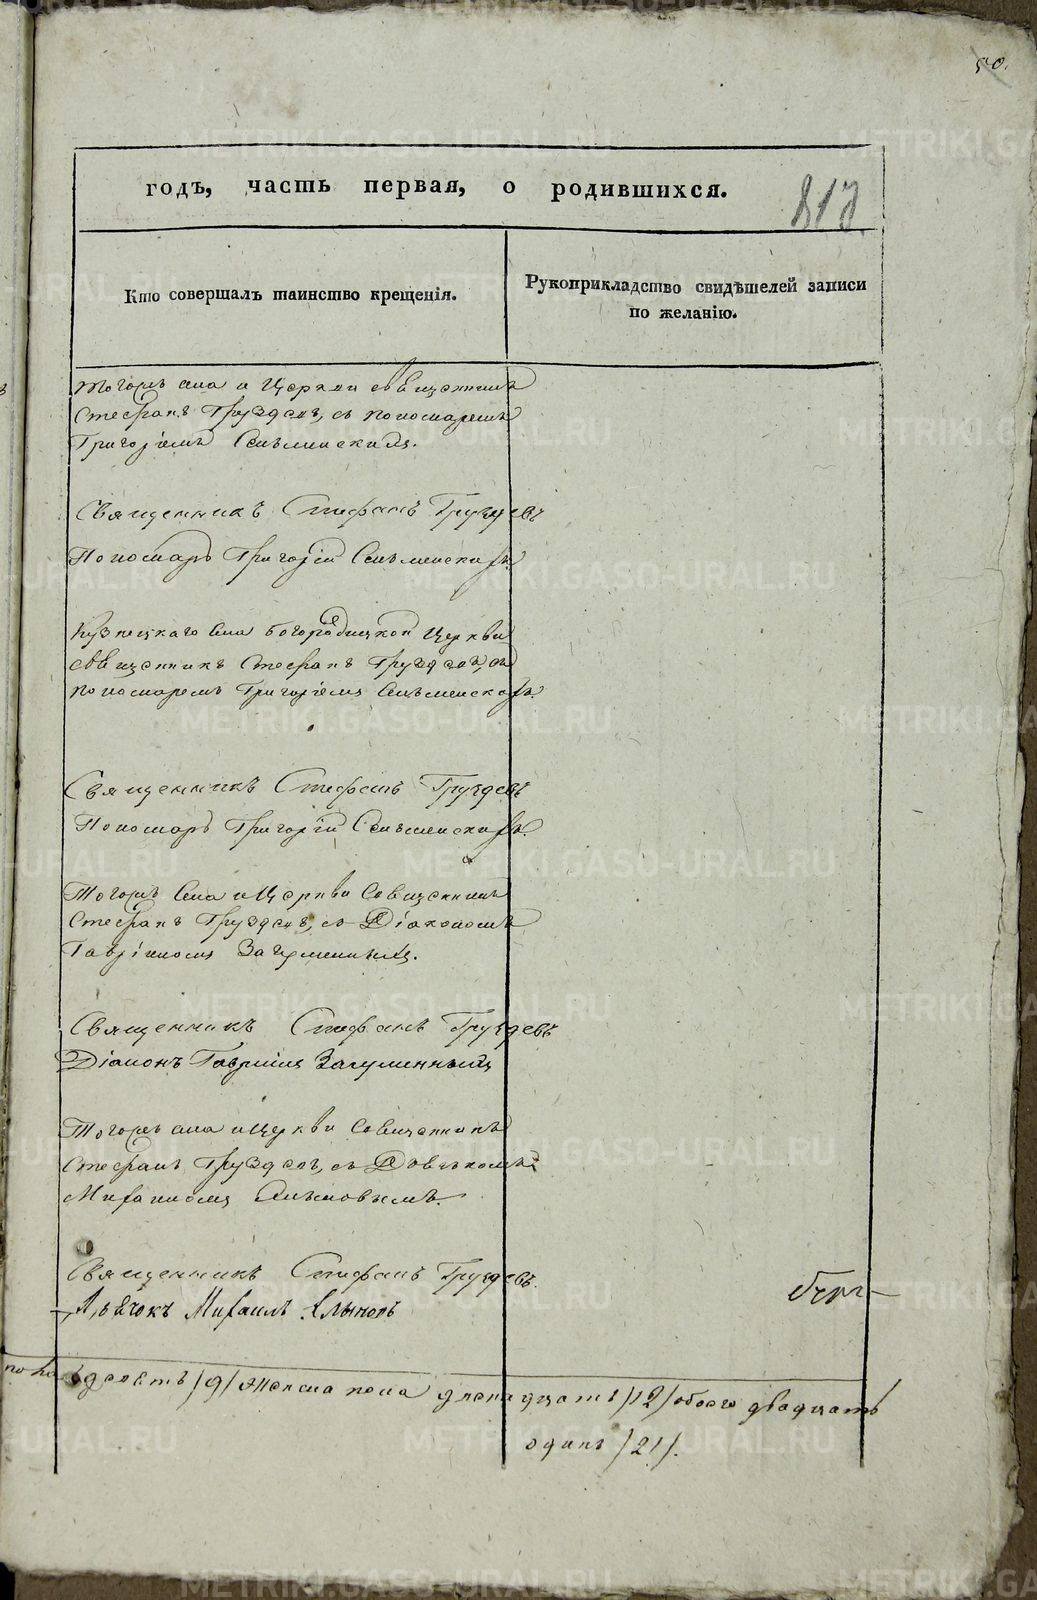 50.
годъ, часть первая, о родившихся.
Кто совершалъ таинство крещенія.
Рукоприкладство свидѣтелей записи
по желанію.
Тогожъ села и Церкви священникъ
Стефанъ Груздевъ, съ пономаремъ
Григоріемъ
Священникъ Стефанъ Груздевъ
Пономарь Григорій
Кузнецкаго села Богородицкой Церкви
священникъ Стефанъ Груздевъ, съ
пономаремъ Григоріемъ
Священникъ Стефанъ Груздевъ
Пономарь Григорій
Тогожъ села и Церкви Священникъ
Стефанъ Груздевъ, съ Діакономъ
Гавріиломъ Загуменнымъ.
Священникъ Стефанъ Груздевъ
Діаконъ Гавріилъ Загуменный
Тогожъ села и Церкви Священникъ
Стефанъ Груздевъ, съ Дьячкомъ
Михаиломъ
Священникъ Стефанъ Груздевъ.
Дьячокъ Михаилъ
девять /9/ женска пола двенадцать /12/ обоего двадцать
одинъ /21/.
METRIKI.GASO-URAL.RU